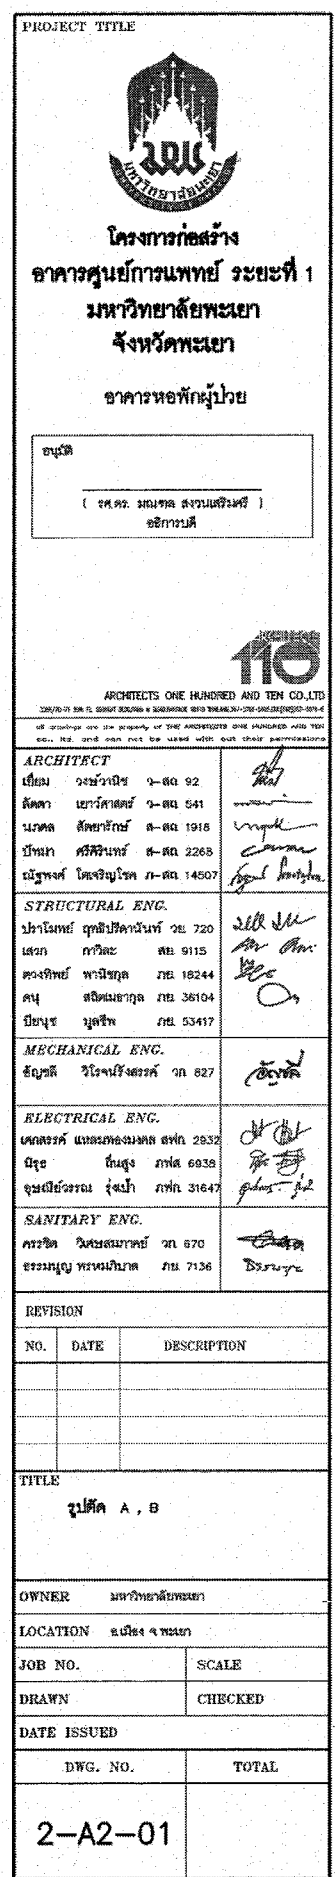 PROJECT TITLE
มหาวิทยาลัยพะเยา
โครงการก่อสร้าง
อาคารศูนย์การแพทย์ ระยะที่ 1
มหาวิทยาลัยพะเยา
จังหวัดพะเยา
อาคารหอพักผู้ป่วย
อนุมัติ
( รศ.ดร. มณฑล สงวนเสริมศรี )
อธิการบดี
110
ARCHITECTS ONE HUNDRED AND TEN CO.,LTD
all drawings are the property of THE ARCHITECTS ONE HUNDRED AND TEN
co., ltd. and can not be used with out their permissions
ARCHITECT
เยี่ยม วงษ์วานิช ว-สถ 92
ลัดดา เยาว์ศาสตร์ ว-สถ 541
นภดล สัตยารักษ์ ส-สถ 1918
ปัทมา ศรีศิรินทร์ ส-สถ 2268
ณัฐพงศ์ โตเจริญโชค ภ-สถ 14507
STRUCTURAL ENG.
ปราโมทย์ ฤทธิปรีดานันท์ วย 720
เสวก กาวิละ สย 9115
ดวงทิพย์ พานิชกุล ภย 18244
คนุ สถิตเมธากุล ภย 36104
ปิยนุช มูลชีพ ภย 53417
MECHANICAL ENG.
ธัญชลี วิโรจน์รังสรรค์ วก 827
ELECTRICAL ENG.
เศกสรรค์ แหลมทองมงคล สฟก 2932
นิรุธ ถิ่นสูง ภฟก 6938
รุ่งเป้า ภฟก 31647
SANITARY ENG.
ครรชิต วิเศษสมภาคย์ วก 670
ธรรมนูญ พรหมภิบาล ภย 7136
REVISION
NO. DATE DESCRIPTION
TITLE
รูปตัด A , B
OWNER มหาวิทยาลัยพะเยา
LOCATION อ.เมือง จ.พะเยา
JOB NO. SCALE
DRAWN CHECKED
DATE ISSUED
DWG. NO. TOTAL
2-A2-01